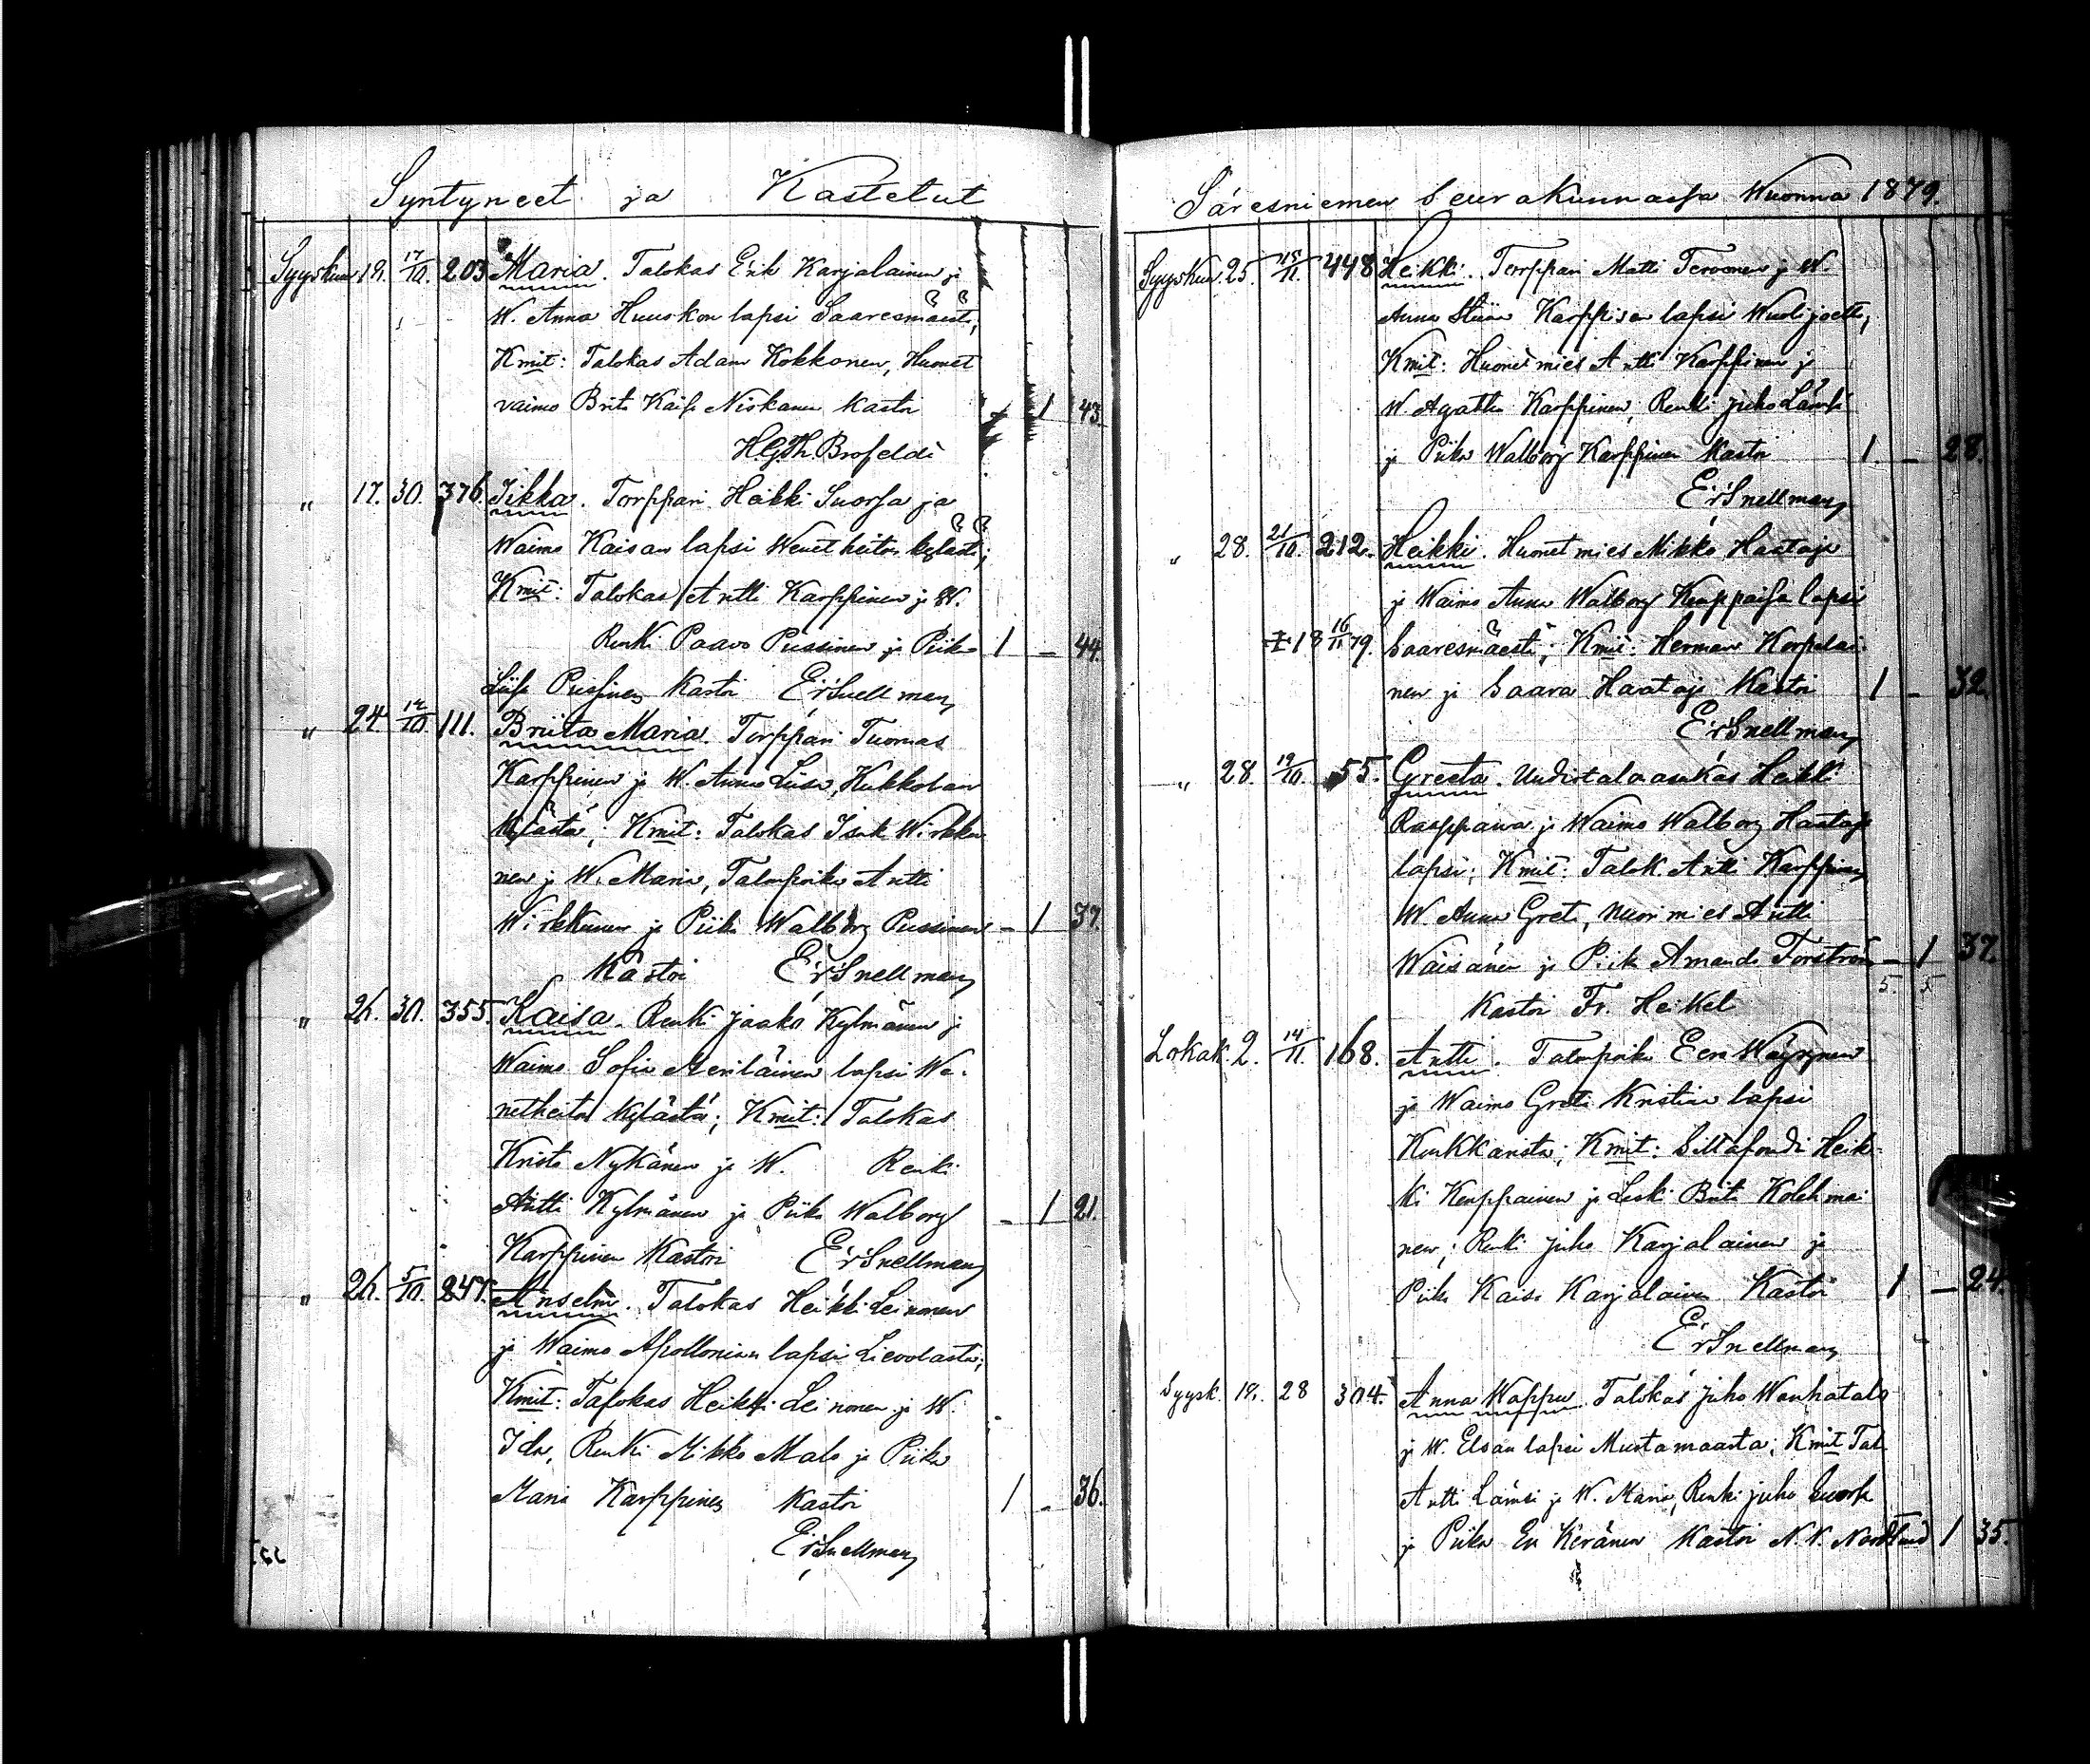 Syntyneet ja Kastetut
Syyskuu 19. 17/10. 203 Maria. Talokas Erik Karjalainen ja
W. Anna Huuskon lapsi Saaresmäestä;
Kmit: Talokas Adam Kokkonen, Huonet
vaimo Brita Kaisa Niskanen kastoi 1 43.
H.G.Th. Brofeldt
" 17. 30. 376. Iikka. Torppari Heikki Suorsa ja
Waimo Kaisan lapsi Wenetheiton kylästä;
Kmit: Talokas Antti Karppinen ja W.
Renki Paavo Pussinen ja Piika 1 – 44.
Liisa Pussinen Kastoi E:r Snellman
" 24. 12/10. 111. Briita Maria. Torppari Tuomas
Karppinen ja W. Anna Liisa, Hukkolan
Kylästä; Kmit: Talokas Isak Wirkku
nen ja W. Maria, Talonpoika Antti
Wirkkunen ja Piika Walborg Pussinen – 1 37.
Kastoi E:r Snellman
" 26. 30. 355. Kaisa. Renki Jaako Kylmänen ja
Waimo Sofia Meriläinen lapsi We-
netheiton kylästä; Kmit: Talokas
Kristo Nykänen ja W. Renki
Antti Kylmänen ja Piika Walborg – 1 21.
Karppinen Kastoi E:r Snellman
" 26. 5/10. 247. Anselm. Talokas Heikki Leinonen
ja Waimo Apollonian lapsi Liewolasta;
Kmit: Talokas Heikki Leinonen ja W.
Ida, Renki Mikko Malo ja Piika
Maria Karppinen Kastoi 1 – 36.
E:r Snellman
Säresniemen Seurakunnassa Wuonna 1879.
Syyskuu. 25. 15/11. 448 Heikki. Torppari Matti Tervonen ja W.
Anna Stiina Karppisen lapsi Wuolijoelta,
Kmit: Huonet mies Antti Karppinen ja
W. Agatha Karppinen, Renki Juho Lämsä
ja Piika Walborg Karppinen Kastoi 1. – 28.
E:r Snellman
" 28. 21/10. 212. Heikki. Huonet mies Mikko Haataja
ja Waimo Anna Walborg Kemppaisen lapsi
18 16/11 79. Saaresmäestä; Kmit: Herman Korpelai-
nen ja Saara Haataja Kastoi 1 – 32.
E:r Snellman
" 28. 19/10. 55. Greeta. Uudistalon asukas Heikki
Rasppana ja Waimo Walborg Haataja
lapsi; Kmit: Talok. Antti Karppinen
W. Anna Greta, nuori mies Antti
Wäisänen ja Piika Amanda Forström – 1 37.
Kastoi Fr. Heikel 5. 5
Lokak. 2. 14/11. 168. Antti. Talonpoika Eero Wäyrynen
ja Waimo Greta Kristina lapsi
Kukkarista; Kmit: Siltafouti Heik-
ki Kemppainen ja Leski Brita Kolehmai-
nen; Renki Juho Karjalainen ja
Piika Kaisa Karjalainen Kastoi 1 – 24.
E:r Snellman
Syysk. 18. 28 304. Anna Wappu. Talokas Juho Wanhatalo
ja W. Elsan lapsi Mustamaasta; Kmit Tal.
Antti Lämsä ja W. Maria, Renki Juho Suorsa
ja Piika Eva Keränen Kastoi N. N. Nordlund 1 35.